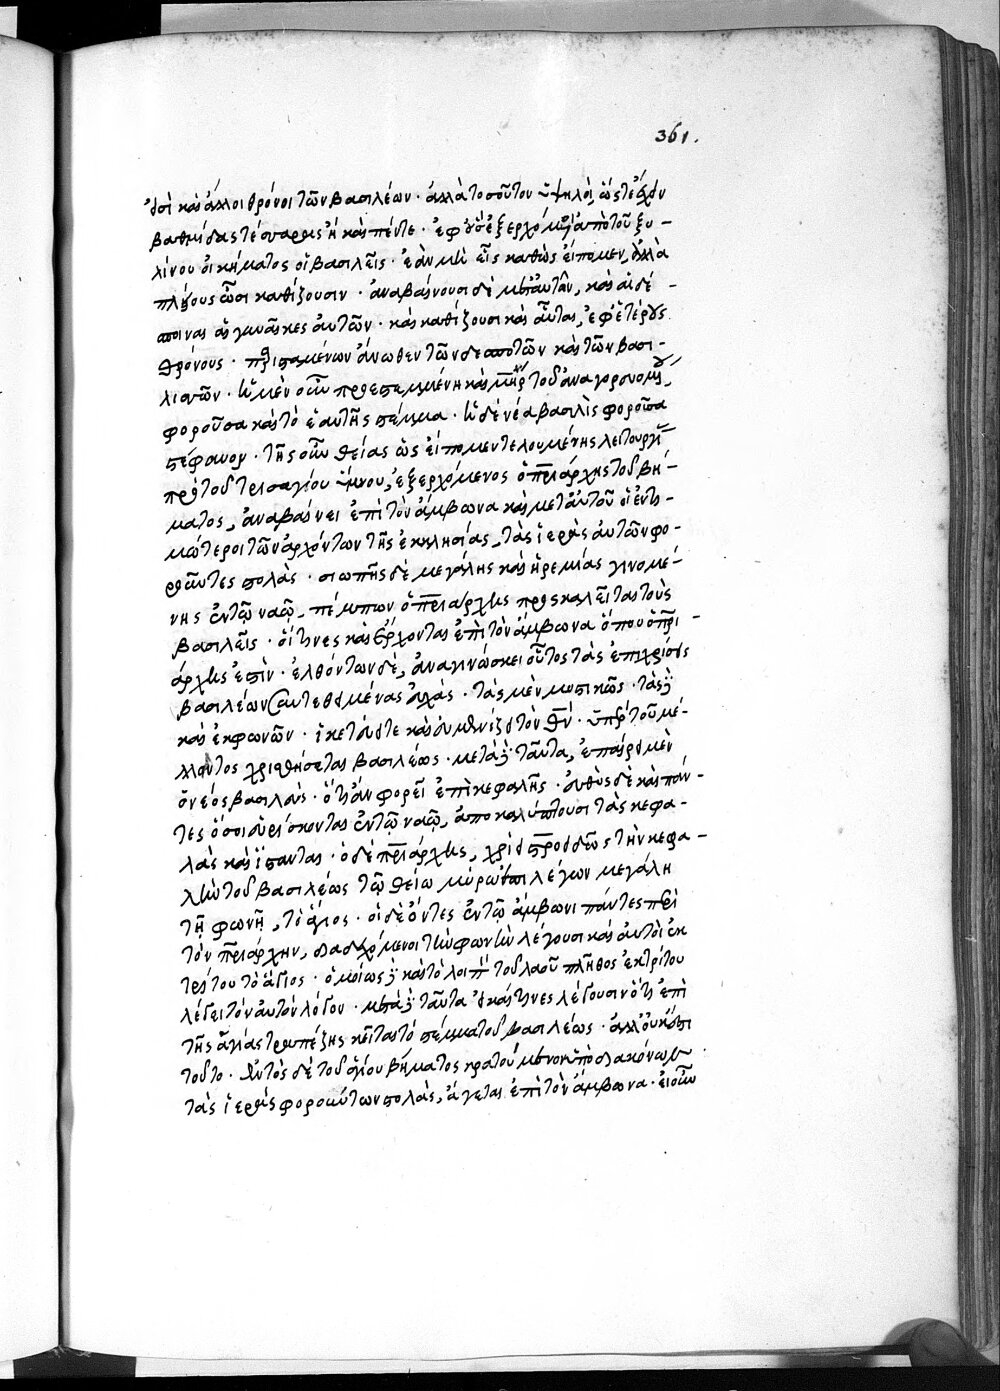 361.
εἰσὶ καὶ ἄλλοι θρόνοι τῶν βασιλέων · ἀλλὰ τοσοῦτον ὑψηλοὶ, ὥστε ἔχειν
βαθμίδας τέσσαρας ἢ καὶ πέντε · ἐφ οὓς ἐξερχόμενοι ἀπὸ τοῦ ξυ-
λίνου οἰκήματος οἱ βασιλεῖς · ἐὰν μὴ εἷς καθὼς εἴπομεν, ἀλλὰ
πλείους ὦσι καθίζουσιν · ἀναβαίνουσι δὲ μετ αὐτῶν, καὶ αἱ δέ-
σποιναι αἱ γυναῖκες αὐτῶν · καὶ καθίζουσι καὶ αὗται, ἐφ ἑτέρους
θρόνους · περισταμένων ἄνωθεν τῶν δεσποτῶν καὶ τῶν βασι-
λισσῶν · ἡ μὲν οὖν προεστεμμένη καὶ μήτηρ τοῦ ἀναγορευομένου
φοροῦσα καὶ τὸ ἑαυτῆς στέμμα · ἡ δὲ νέα βασιλὶς φοροῦσα
στέφανον · τῆς οὖν θείας ὡς εἴπομεν τελουμένης λειτουργίας
πρὸ τοῦ τρισαγίου ὕμνου, ἐξερχόμενος ὁ πατριάρχης τοῦ βή-
ματος, ἀναβαίνει ἐπὶ τὸν ἄμβωνα καὶ μετ αὐτοῦ οἱ ἐντι-
μώτεροι τῶν ἀρχόντων τῆς ἐκκλησίας, τὰς ἱερὰς αὐτῶν φο-
ροῦντες στολάς · σιωπῆς δὲ μεγάλης καὶ ἠρεμίας γινομέ-
νης ἐν τῷ ναῷ, πέμπων ὁ πατριάρχης προσκαλεῖται τοὺς
βασιλεῖς · οἵτινες καὶ ἔρχονται ἐπὶ τὸν ἄμβωνα ὅπου ὁ πατρι-
άρχης ἐστὶν · ἐλθόντων δὲ, ἀναγινώσκει οὗτος τὰς ἐπιχρίσει
βασιλέων συντεθειμένας εὐχάς · τὰς μὲν μυστικῶς · τὰς δὲ
καὶ ἐκφωνῶν · ἱκετεύει τε καὶ ἐξευμενίζει τὸν θεόν · ὑπὲρ τοῦ μέ-
λλοντος χρισθήσεσθαι βασιλέως · μετὰ δὲ ταῦτα, ἐπαίρει μὲν
ὁ νέος βασιλεὺς · ὅτι ἂν φορεῖ ἐπὶ κεφαλῆς · εὐθὺς δὲ καὶ πάν-
τες ὅσοι εὑρίσκονται ἐν τῷ ναῷ, ἀποκαλύπτουσι τὰς κεφα-
λὰς καὶ ἵστανται · ὁ δὲ πατριάρχης, χρίει σταυροειδῶς τὴν κεφα-
λὴν τοῦ βασιλέως τῷ θείῳ μύρῳ ἐπιλέγων μεγάλῃ
τῇ φωνῇ, τὸ ἅγιος · οἱ δὲ ὄντες ἐν τῷ ἄμβωνι πάντες περὶ
τὸν πατριάρχην, διαδεχόμενοι τὴν φωνὴν λέγουσι καὶ αὐτοὶ ἐκ
τρίτου τὸ ἅγιος · ὁμοίως δὲ καὶ τὸ λοιπὸν τοῦ λαοῦ πλῆθος ἐκ τρίτου
λέγει τὸν αὐτὸν λόγον · μετὰ δὲ ταῦτα εἰ καί τινες λέγουσιν ὅτι ἐπὶ
τῆς ἁγίας τραπέζης κεῖται τὸ στέμμα τοῦ βασιλέως · ἀλλ οὐκ ἔστι
τοῦτο · ἐντὸς δὲ τοῦ ἁγίου βήματος κρατούμενον ὑπὸ διακόνων
τὰς ἱερὰς φορούντων στολάς, ἄγεται ἐπὶ τὸν ἄμβωνα · εἰ οὖν